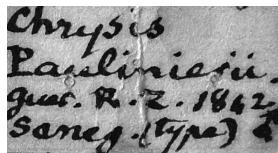 Chrysis
Pauliniesii.
guer. R. Z. 1842
Seneg. (type)